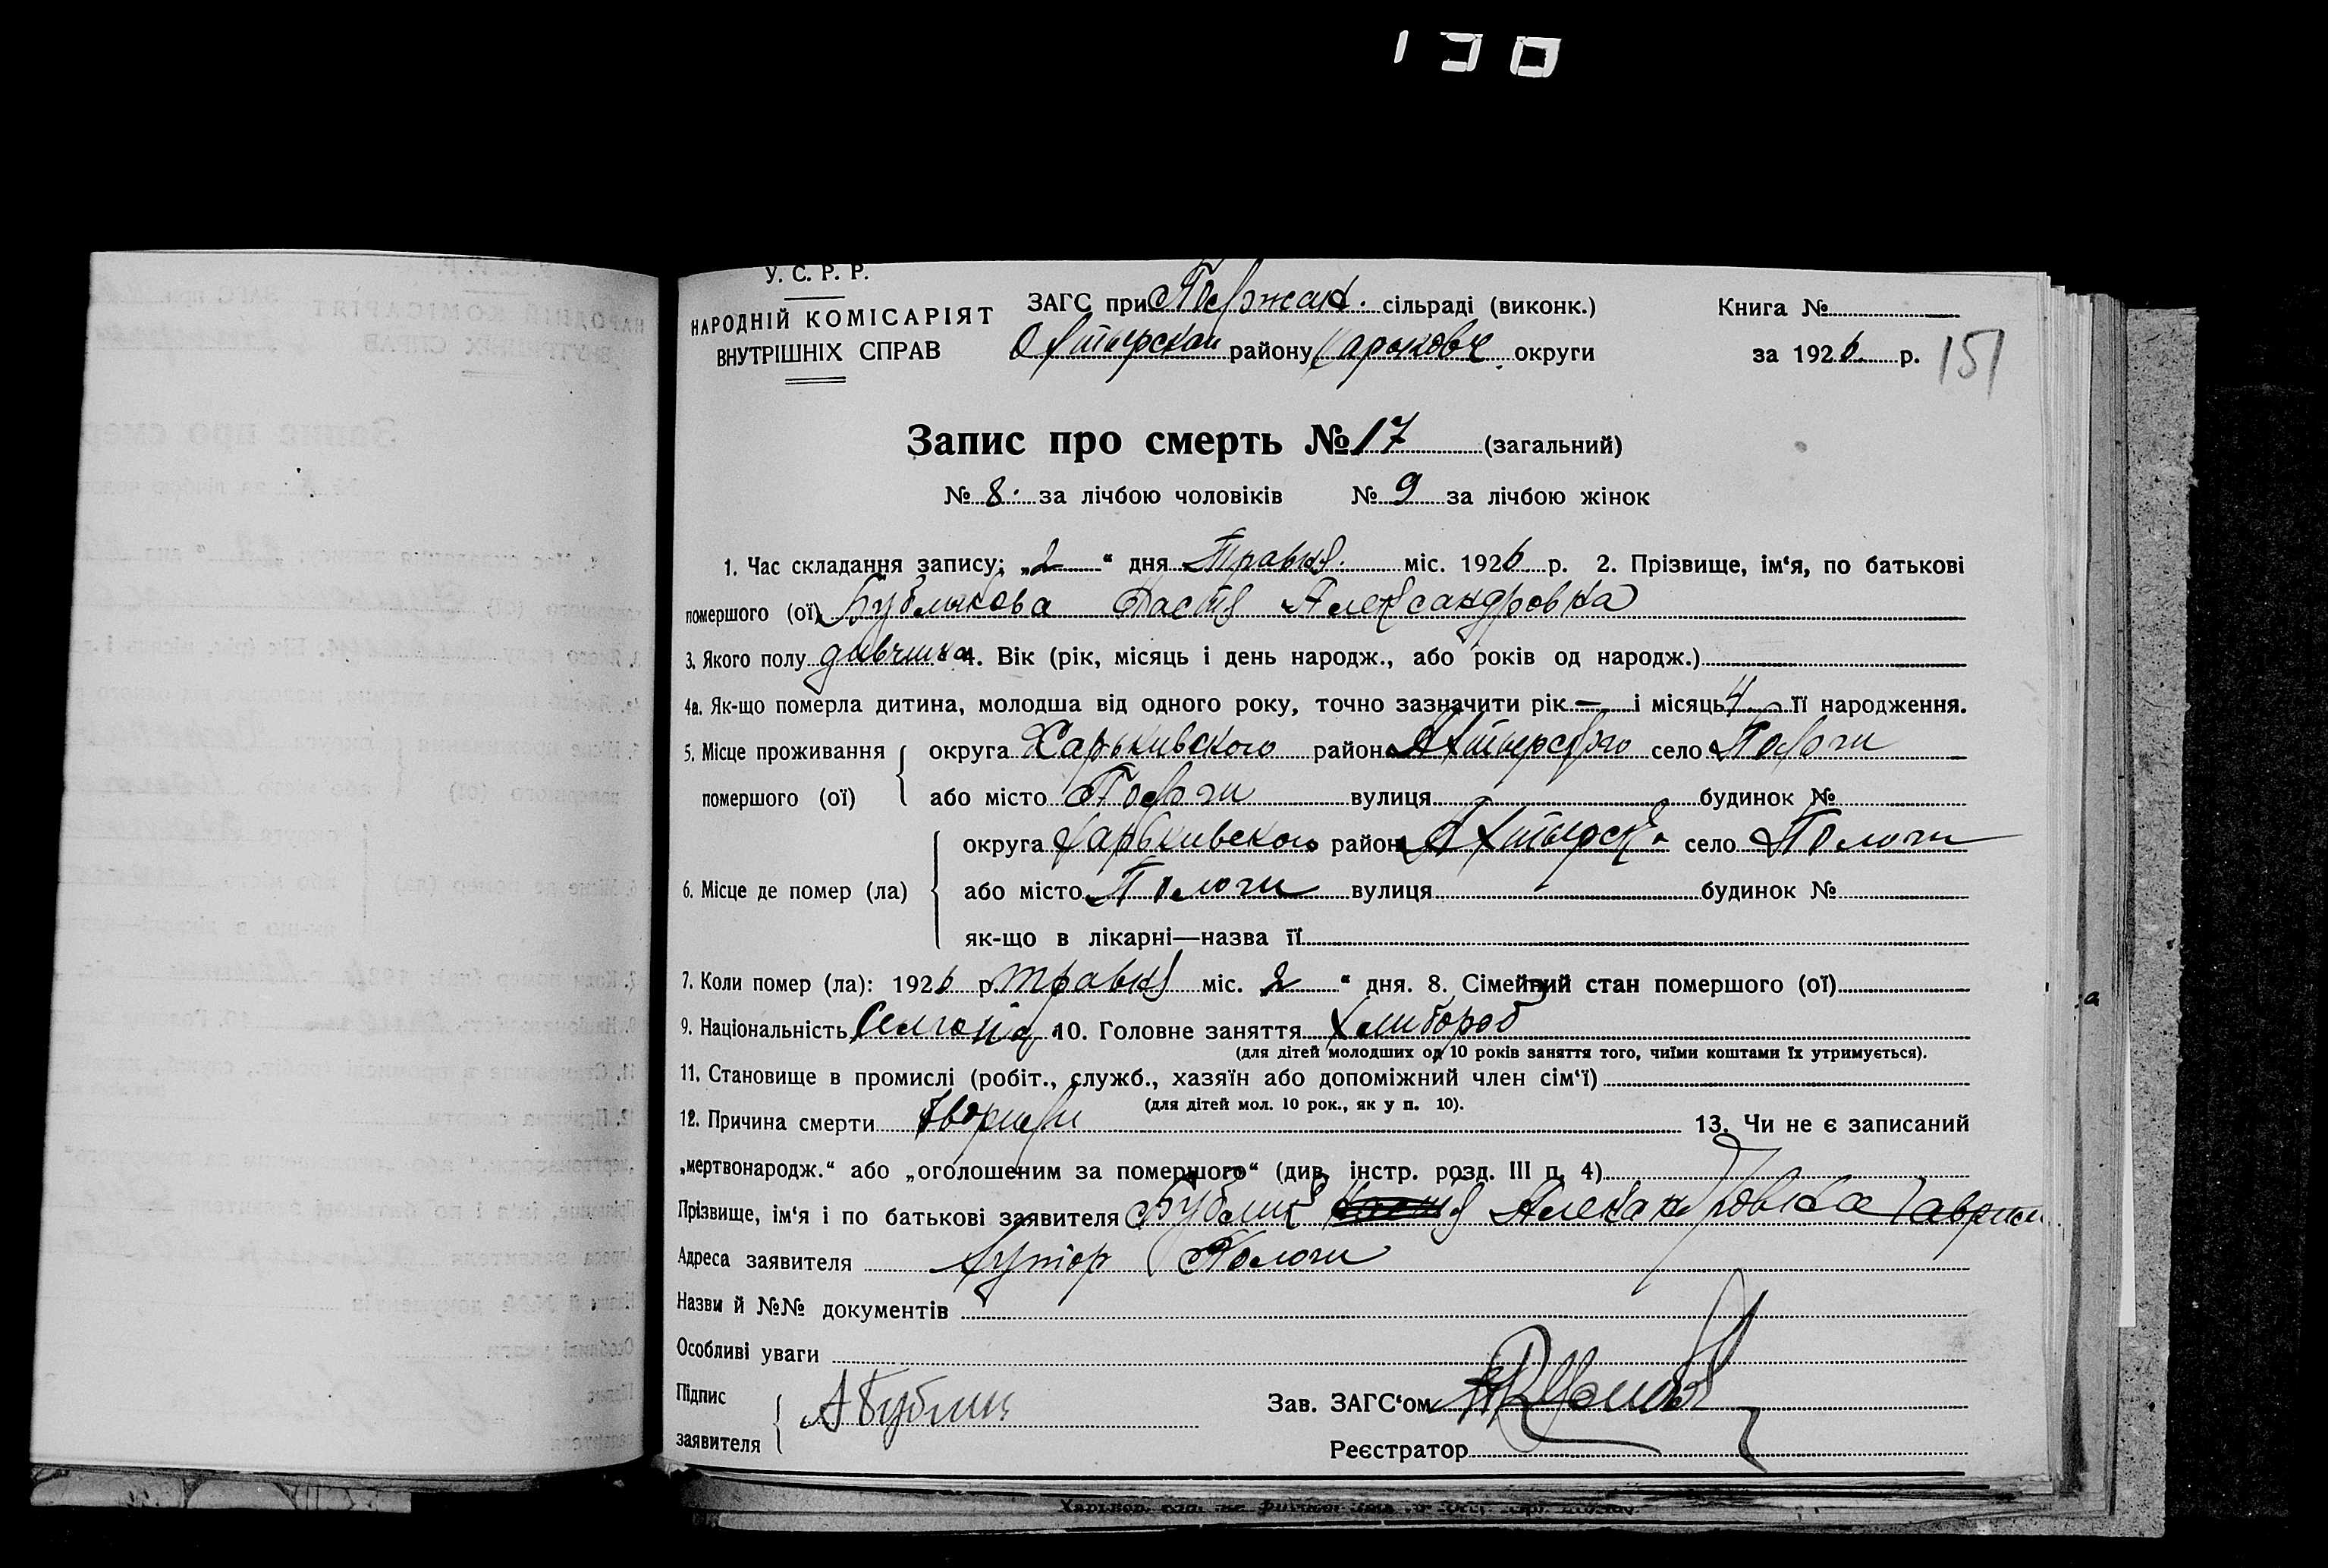 130
У. С. Р. Р.
НАРОДНІЙ КОМІСАРІЯТ
ВНУТРІШНІХ СПРАВ
ЗАГС при сільраді (виконк.)
району округи
Книга №
за 1926 р.
151
Запис про смерть № 17 (загальний)
№ 8. за лічбою чоловіків № 9 за лічбою жінок
1. Час складання запису: „2“ дня Травня міс. 1926 р. 2. Прізвище, ім‘я, по батькові
помершого (ої) Бубликова Настя Александровна
3. Якого полу дивчина 4. Вік (рік, місяць і день народж., або років од народж.)
4а. Як-що померла дитина, молодша від одного року, точно зазначити рік — і місяць 4 її народження.
5. Місце проживання помершого (ої)
округа Харькивского район Ахтырского село Пологи
або місто Пологи вулиця будинок №
6. Місце де помер (ла)
округа Харькивского район Ахтырск. село Пологи
або місто Пологи вулиця будинок №
як-що в лікарні—назва її
7. Коли помер (ла): 1926 р. травня міс. 2 “ дня. 8. Сімейний стан помершого (ої)
9. Національність 10. Головне заняття Хлибороб
(для дітей молодших од 10 років заняття того, чиїми коштами їх утримується).
11. Становище в промислі (робіт., служб., хазяїн або допоміжний член сім‘ї)
(для дітей мол. 10 рок., як у п. 10).
12. Причина смерти 13. Чи не є записаний
„мертвонародж.“ або „оголошеним за помершого“ (див. інстр. розд. III п. 4)
Прізвище, ім‘я і по батькові заявителя Бублик
Адреса заявителя хутор Пологи
Назви й №№ документів
Особливі уваги
Підпис заявителя А Бублик
Зав. ЗАГС‘ом
Реєстратор